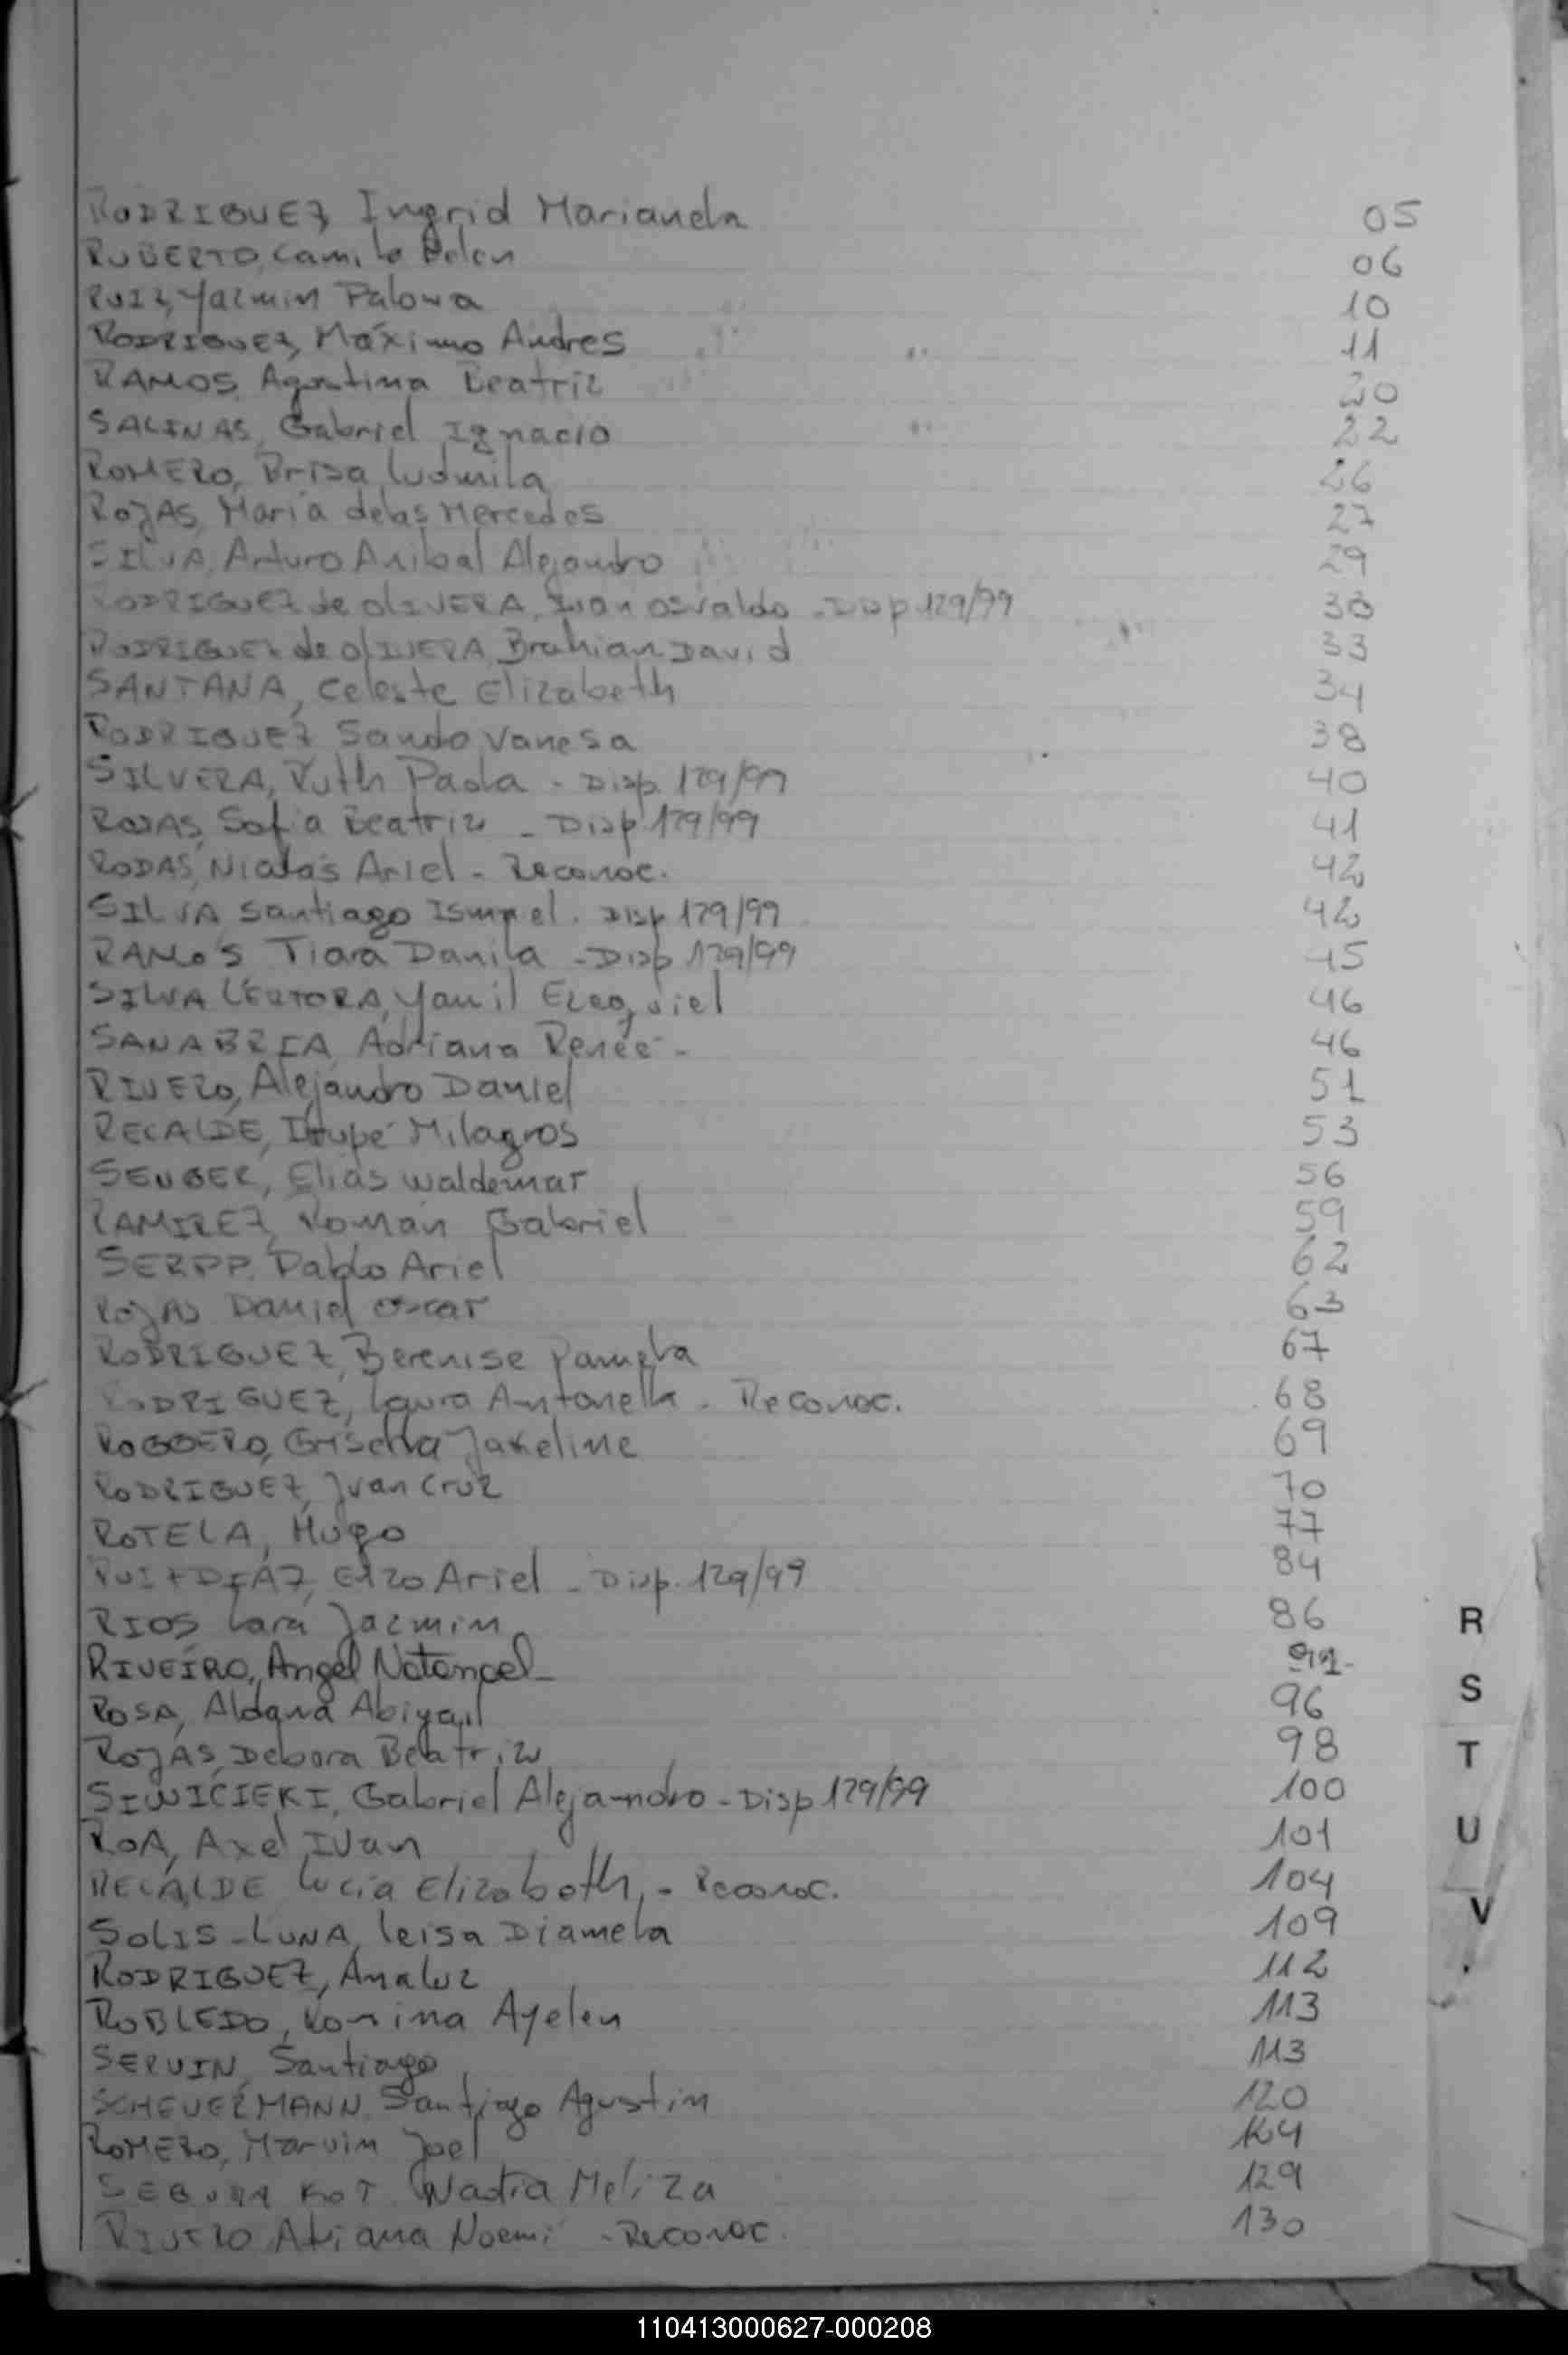 RODRIGUEZ, Ingrid Marianela 05
RUBERTO, Camila Belen 06
RUIZ, Yazmin Paloma 10
RODRIGUEZ, Máximo Andres 11
RAMOS, Agustina Beatriz 20
SALINAS, Gabriel Ignacio 22
ROMERO, Brisa Ludmila 26
ROJAS, Maria delas Mercedes 27
SILVA, Arturo Anibal Alejandro 29
RODRIGUEZ de OLIVERA, Ivan Osvaldo - Disp 129/99 33
RODRIGUEZ de OLIVERA, Brahian David 33
SANTANA, Celeste Elizabeth 34
RODRIGUEZ Vanesa 38
SILVERA, Ruth Paola - Disp. 129/99 40
ROJAS, Sofia Beatriz - Disp 129/99 41
RODAS, Nicolás Ariel - Reconoc. 42
SILVA, Santiago Ismael. Disp 129/99 42
RAMOS Tiara Danila - Disp 129/99 45
SILVA LERTORA, Yamil Ezequiel 46
SANABRIA, Adriana Reneé - 46
RIVERO, Alejandro Daniel 51
RECALDE, Itupé Milagros 53
SENGER, Elias Waldemar 56
RAMIREZ, Román Gabriel 59
Pablo Ariel 62
ROJAS Daniel Oscar 63
RODRIGUEZ, Berenise Pamela 67
RODRIGUEZ, Laura Antonella - Reconoc. 68
ROGGERO, Griselda Jakeline 69
RODRIGUEZ, Juan Cruz 70
ROTELA, Hugo 77
RUIZ DIAZ, Enzo Ariel - Disp. 129/99 84
RIOS Lara Jazmin 86
RIVEIRO, Angel Natanael - 91-
ROSA, Aldana Abigail 96
ROJAS, Debora Beatriz 98
SIWICIEKI, Gabriel Alejandro - Disp 129/99 100
ROA, Axel Ivan 101
RECALDE Lucia Elizabeth, - Reconoc. 104
SOLIS - LUNA, Leisa Diamela 109
RODRIGUEZ, Analuz 112
ROBLEDO, Romina Ayelen 113
SERVIN, Santiago 113
SCHEUERMANN Santiago Agustin 120
ROMERO, Marvin Joel 124
SEGURA KOT Nadia Meliza 129
RIVERO Noemi - Reconoc. 130
R
S
T
U
V
110413000627-000208